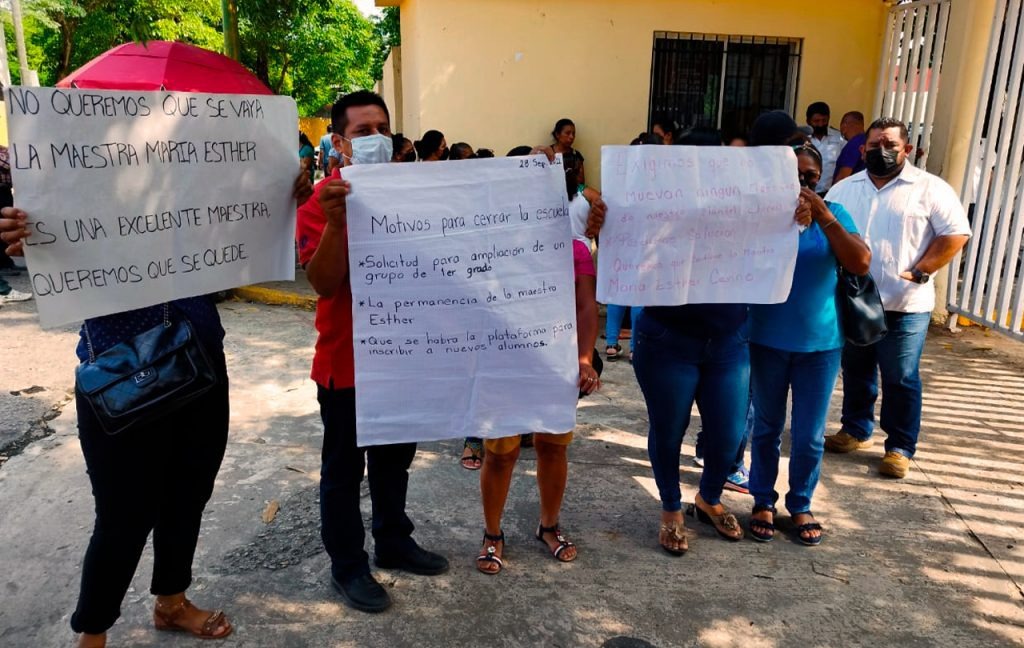 NO QUEREMOS QUE SE VAYA
LA MAESTRA MARIA ESTHER
ES UNA EXCELENTE MAESTRA.
QUEREMOS QUE SE QUEDE
28 Sep.
Motivos para cerrar la escuela
*Solicitud para ampliación de un
grupo de 1er grado
*La permanencia de la maestra
Esther
*Que se habra la plataforma para
inscribir a nuevos alumnos.
Exigimos que no
muevan ningun
de nuestro plantel
Solución
Queremos que la Maestra
Maria Esther